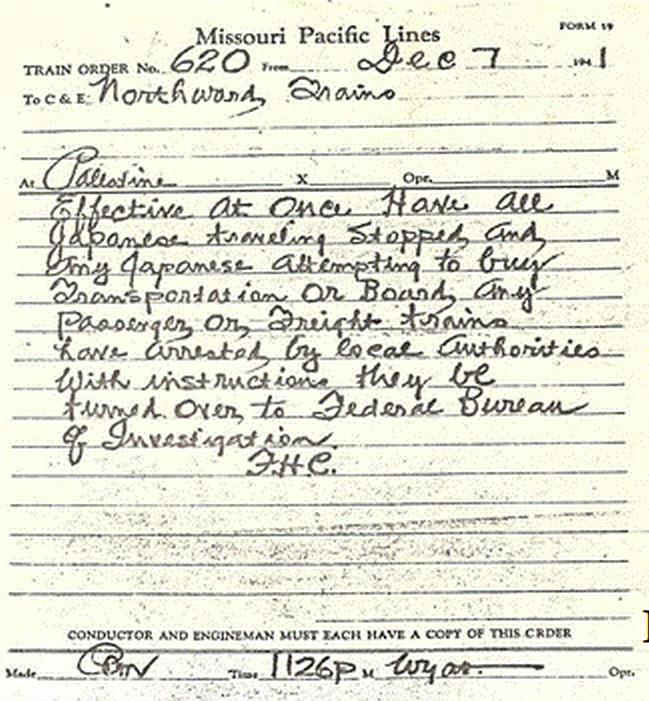 Missouri Pacific Lines
FORM 19
TRAIN ORDER No. 620 From Dec 7 1941
To C & E. Northward Trains
At Palestine X Opr. M
Effective At Once Have All
Japanese traveling Stopped And
Any Japanese Attempting to buy
Transportation Or Board Any
Passenger Or Freight trains
have arrested by local Authorities
With instructions they be
turned Over to Federal Bureau
Of Investigation.
F.H.C.
CONDUCTOR AND ENGINEMAN MUST EACH HAVE A COPY OF THIS ORDER
Made Time 1126P M Opr.